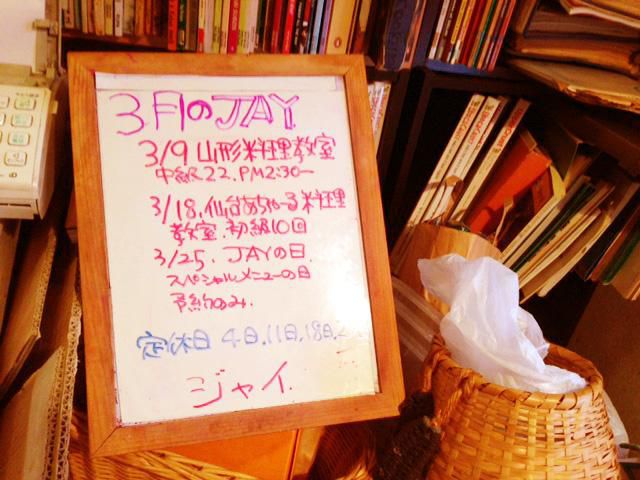 3月のJAY
3/9 山形料理教室
中級22. PM2:30〜
3/18. 仙台あちゃーる料理
教室. 初級10回
3/25. JAYの日.
スペシャルメニューの日
予約のみ.
定休日 4日.11日.18日.2
ジャイ.